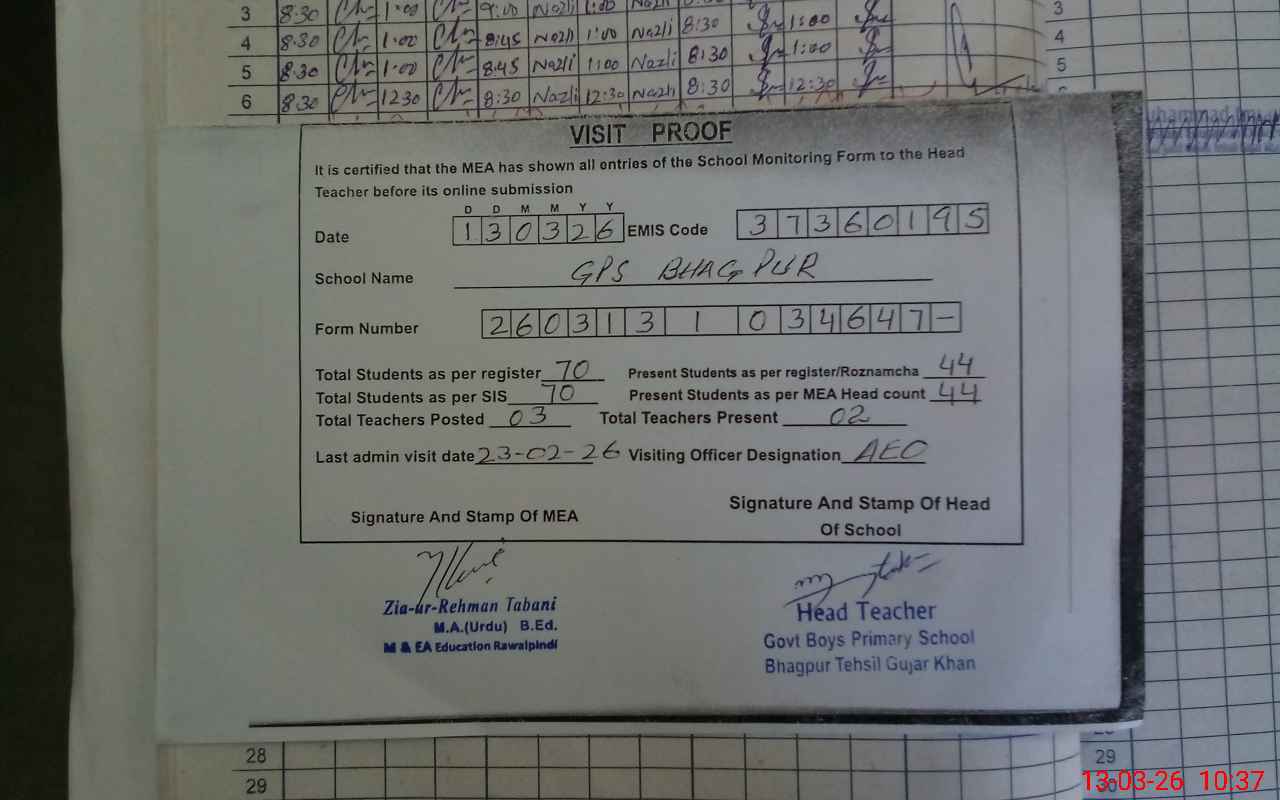 3 8:30 1:00 9:00 Nazli 1:00 Nazli 8:30 1:00 3
4 8:30 1:00 8:45 Nazli 1:00 Nazli 8:30 1:00 4
5 8:30 1:00 8:45 Nazli 1:00 Nazli 8:30 12:30 5
6 8:30 1230 8:30 Nazli 12:30 Nazli 8:30
VISIT PROOF
It is certified that the MEA has shown all entries of the School Monitoring Form to the Head
Teacher before its online submission
D D M M Y Y
Date 130326 EMIS Code 37360195
School Name GPS BHAGPUR
Form Number 260313 1 034647-
Total Students as per register 70 Present Students as per register/Roznamcha 44
Total Students as per SIS 70 Present Students as per MEA Head count 44
Total Teachers Posted 03 Total Teachers Present 02
Last admin visit date 23-02-26 Visiting Officer Designation AEO
Signature And Stamp Of MEA Signature And Stamp Of Head
Of School
Zia-ur-Rehman Tabani
M.A.(Urdu) B.Ed.
M & EA Education Rawalpindi
Head Teacher
Govt Boys Primary School
Bhagpur Tehsil Gujar Khan
28
29 29
13-03-26 10:37